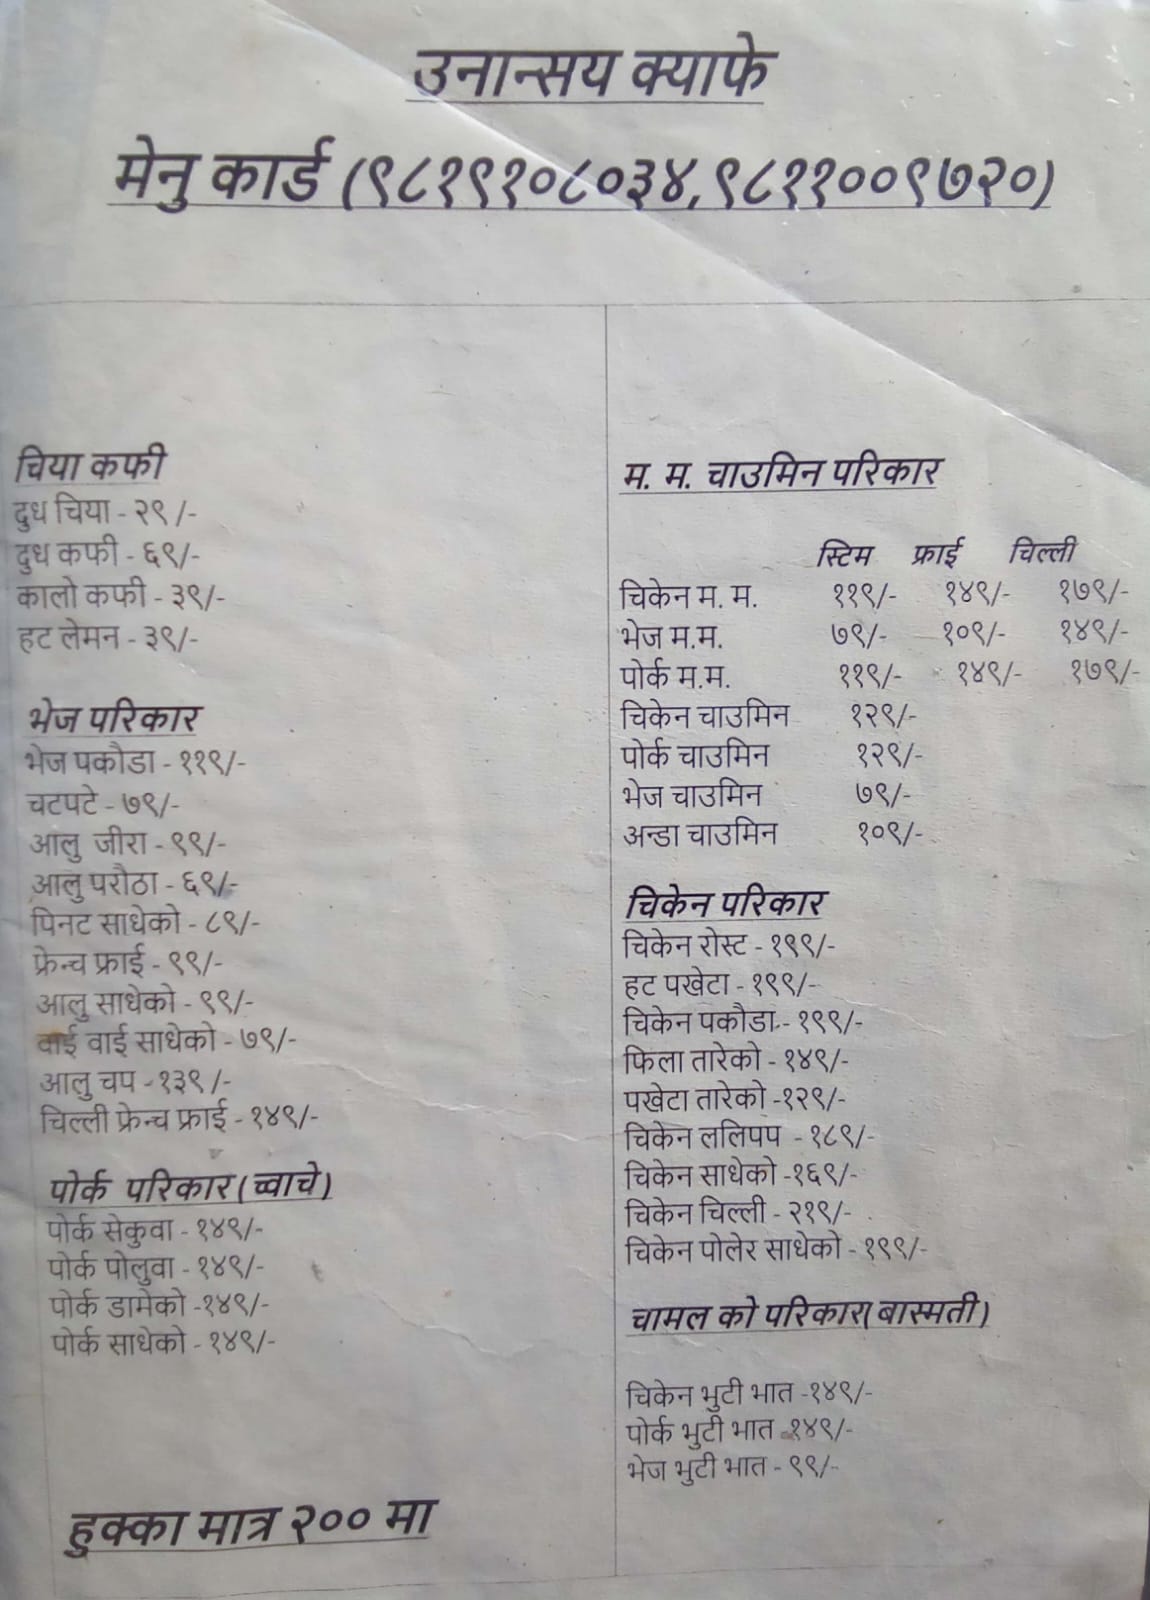 उनान्सय क्याफे
मेनु कार्ड (९८१९१०८०३४,९८११००९७२०)
चिया कफी
दुध चिया - २९ /-
दुध कफी - ६९/-
कालो कफी - ३९/-
हट लेमन - ३९/-
भेज परिकार
भेज पकौडा - ११९/-
चटपटे - ७९/-
आलु जीरा - ९९/-
आलु परौठा - ६९/-
पिनट साधेको - ८९/-
फ्रेन्च फ्राई - ९९/-
आलु साधेको - ९९/-
वाई वाई साधेको - ७९/-
आलु चप - १३९ /-
चिल्ली फ्रेन्च फ्राई - १४९/-
पोर्क परिकार (च्वाचे)
पोर्क सेकुवा - १४९/-
पोर्क पोलुवा - १४९/-
पोर्क डामेको -१४९/-
पोर्क साधेको - १४९/-
हुक्का मात्र २०० मा
म. म. चाउमिन परिकार
स्टिम फ्राई चिल्ली
चिकेन म. म. ११९/- १४९/- १७९/-
भेज म.म. ७९/- १०९/- १४९/-
पोर्क म.म. ११९/- १४९/- १७९/-
चिकेन चाउमिन १२९/-
पोर्क चाउमिन १२९/-
भेज चाउमिन ७९/-
अन्डा चाउमिन १०९/-
चिकेन परिकार
चिकेन रोस्ट - १९९/-
हट पखेटा - १९९/-
चिकेन पकौडा - १९९/-
फिला तारेको - १४९/-
पखेटा तारेको -१२९/-
चिकेन ललिपप - १८९/-
चिकेन साधेको -१६९/-
चिकेन चिल्ली - २१९/-
चिकेन पोलेर साधेको - १९९/-
चामल को परिकार( बास्मती)
चिकेन भुटी भात -१४९/-
पोर्क भुटी भात -१४९/-
भेज भुटी भात - ९९/-